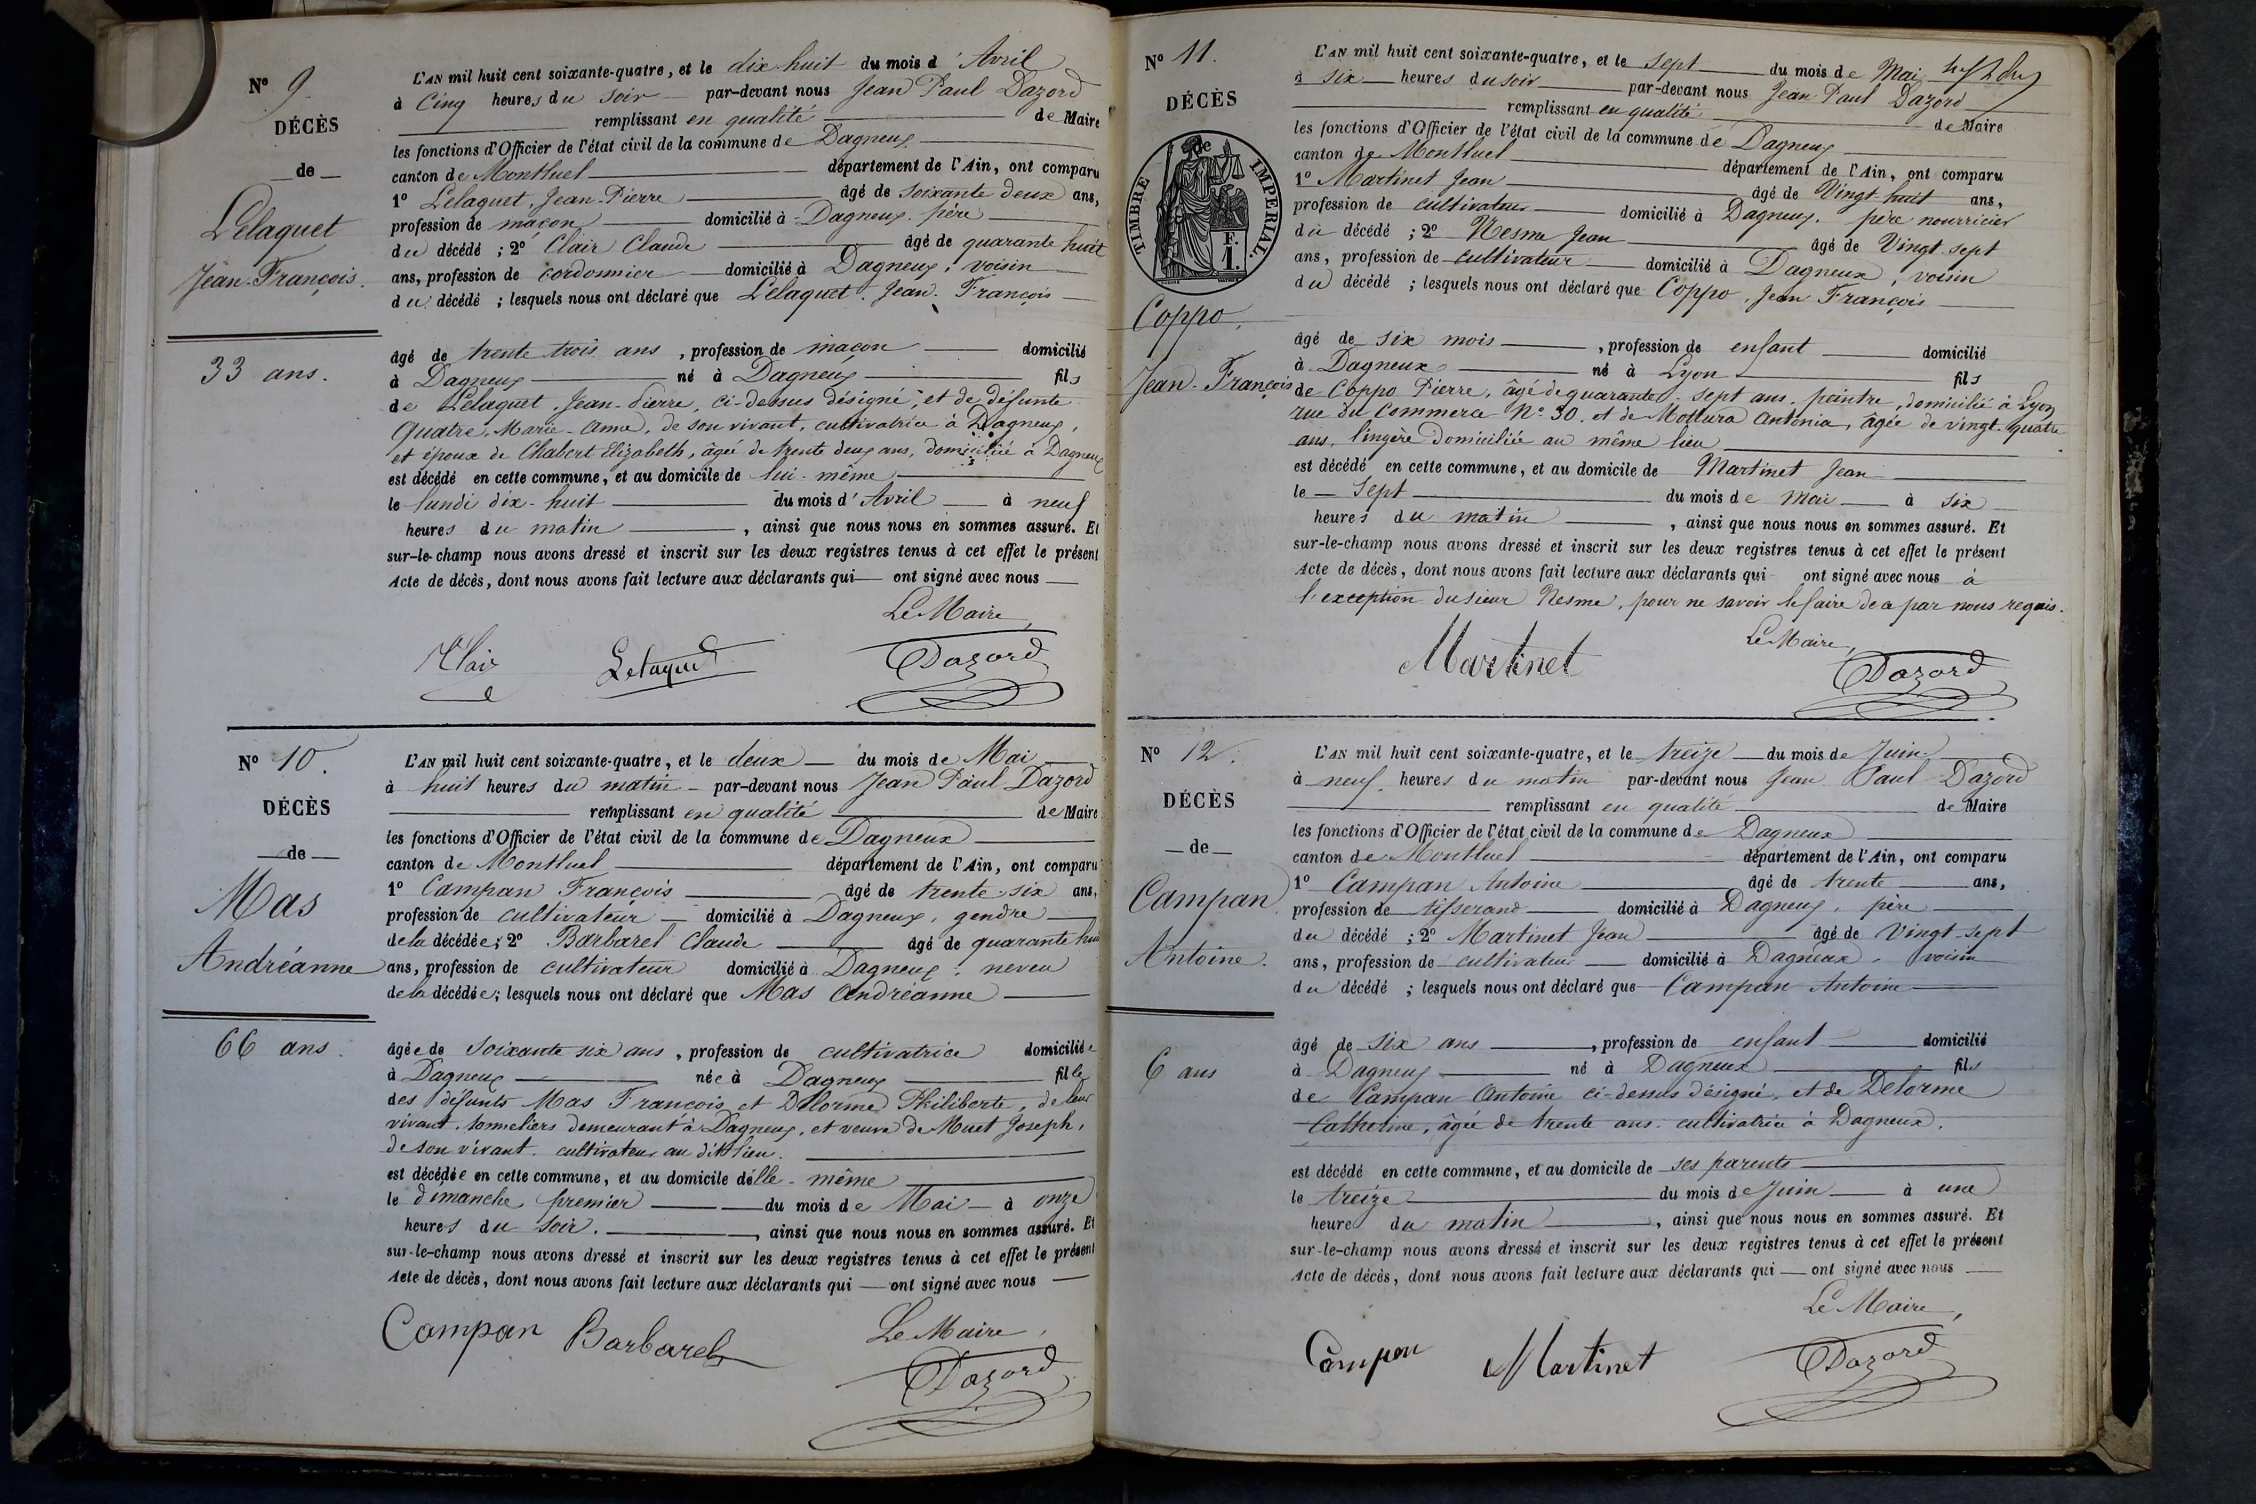 N° 9.
DÉCÈS
de
Lelaquet
Jean-François.
33 ans.
L'AN mil huit cent soixante-quatre, et le dix-huit du mois d'Avril
à Cinq heures du soir par-devant nous Jean Paul Dazord
remplissant en qualité de Maire
les fonctions d'Officier de l'état civil de la commune de Dagneux
canton de Montluel département de l'Ain, ont comparu
1° Lelaquet, Jean-Pierre âgé de soixante deux ans,
profession de maçon domicilié à Dagneux, père
du décédé ; 2° Clair Claude âgé de quarante huit
ans, profession de cordonnier domicilié à Dagneux, voisin
du décédé ; lesquels nous ont déclaré que Lelaquet, Jean-François
âgé de trente trois ans, profession de maçon domicilié
à Dagneux né à Dagneux fils
de Lelaquet, Jean-Pierre, ci-dessus désigné, et de défunte
Quatre, Marie-Anne, de son vivant, cultivatrice à Dagneux,
et époux de Chabert Elizabeth, âgée de trente deux ans, domiciliée à Dagneux
est décédé en cette commune, et au domicile de lui-même
le lundi dix-huit du mois d'Avril à neuf
heures du matin, ainsi que nous nous en sommes assuré. Et
sur-le-champ nous avons dressé et inscrit sur les deux registres tenus à cet effet le présent
Acte de décès, dont nous avons fait lecture aux déclarants qui ont signé avec nous
Le Maire,
Clair Lelaquet Dazord
N° 10.
DÉCÈS
de
Mas
Andréanne
66 ans.
L'AN mil huit cent soixante-quatre, et le deux du mois de Mai
à huit heures du matin par-devant nous Jean Paul Dazord
remplissant en qualité de Maire
les fonctions d'Officier de l'état civil de la commune de Dagneux
canton de Montluel département de l'Ain, ont comparu
1° Campan François âgé de trente-six ans,
profession de cultivateur domicilié à Dagneux, gendre
de la décédée ; 2° Barbarel Claude âgé de quarante huit
ans, profession de cultivateur domicilié à Dagneux, neveu
de la décédée ; lesquels nous ont déclaré que Mas Andréanne
âgée de soixante six ans, profession de cultivatrice domiciliée
à Dagneux née à Dagneux fille
des défunts Mas François et Delorme Philiberte, de leur
vivant, tonneliers demeurant à Dagneux, et veuve de Muet Joseph,
de son vivant, cultivateur au dit lieu.
est décédée en cette commune, et au domicile d'elle-même
le dimanche premier du mois de Mai à onze
heures du soir, ainsi que nous nous en sommes assuré. Et
sur-le-champ nous avons dressé et inscrit sur les deux registres tenus à cet effet le présent
Acte de décès, dont nous avons fait lecture aux déclarants qui ont signé avec nous
Le Maire,
Campan Barbarel Dazord
N° 11.
DÉCÈS
de
TIMBRE IMPERIAL
F. 1.
Coppo,
Jean-François
L'AN mil huit cent soixante-quatre, et le sept du mois de Mai
à six heures du soir par-devant nous Jean Paul Dazord
remplissant en qualité de Maire
les fonctions d'Officier de l'état civil de la commune de Dagneux
canton de Montluel département de l'Ain, ont comparu
1° Martinet Jean âgé de Vingt huit ans,
profession de cultivateur domicilié à Dagneux, père nourricier
du décédé ; 2° Nesme Jean âgé de Vingt-sept
ans, profession de cultivateur domicilié à Dagneux, voisin
du décédé ; lesquels nous ont déclaré que Coppo, Jean François
âgé de six mois, profession de enfant domicilié
à Dagneux né à Lyon fils
de Coppo Pierre, âgé de quarante-sept ans, peintre, domicilié à Lyon
rue du Commerce N° 30, et de Mollura Antonia, âgée de vingt-quatre
ans, lingère domiciliée au même lieu
est décédé en cette commune, et au domicile de Martinet Jean
le sept du mois de mai à six
heures du matin, ainsi que nous nous en sommes assuré. Et
sur-le-champ nous avons dressé et inscrit sur les deux registres tenus à cet effet le présent
Acte de décès, dont nous avons fait lecture aux déclarants qui ont signé avec nous à
l'exception du sieur Nesme, pour ne savoir le faire de ce par nous requis.
Le Maire,
Martinet Dazord
N° 12.
DÉCÈS
de
Campan
Antoine.
6 ans
L'AN mil huit cent soixante-quatre, et le treize du mois de Juin
à neuf heures du matin par-devant nous Jean Paul Dazord
remplissant en qualité de Maire
les fonctions d'Officier de l'état civil de la commune de Dagneux
canton de Montluel département de l'Ain, ont comparu
1° Campan Antoine âgé de trente ans,
profession de tisserand domicilié à Dagneux, père
du décédé ; 2° Martinet Jean âgé de Vingt-sept
ans, profession de cultivateur domicilié à Dagneux, voisin
du décédé ; lesquels nous ont déclaré que Campan Antoine
âgé de six ans, profession de enfant domicilié
à Dagneux né à Dagneux fils
de Campan Antoine ci-dessus désigné, et de Delorme
Catherine, âgée de trente ans, cultivatrice à Dagneux.
est décédé en cette commune, et au domicile de ses parents
le treize du mois de Juin à une
heure du matin, ainsi que nous nous en sommes assuré. Et
sur-le-champ nous avons dressé et inscrit sur les deux registres tenus à cet effet le présent
Acte de décès, dont nous avons fait lecture aux déclarants qui ont signé avec nous
Le Maire,
Campan Martinet Dazord